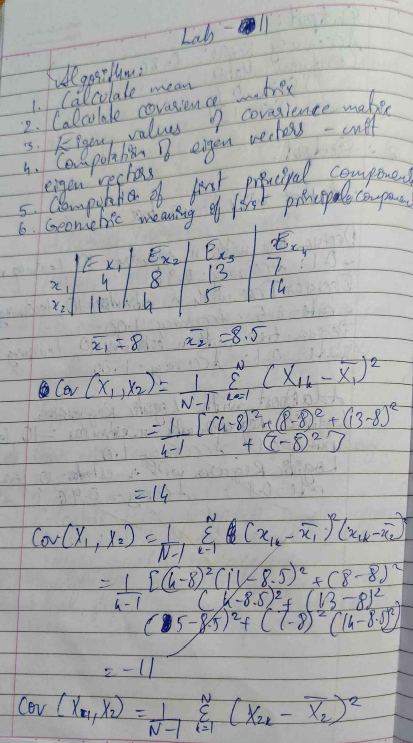 Lab - 11
Algorithm:
1. Calculate mean
2. Calculate covarience matrix
3. Eigen values of covarience matrix
4. Computation of eigen vectors - unit
eigen vectors
5. Computation of first principal component
6. Geometric meaning of first principal component
Ex1 Ex2 Ex3 Ex4
x1 4 8 13 7
x2 11 4 5 14
x̄1 = 8, x̄2 = 8.5
Cov (X1, X2) = 1/N-1 Σ k=1 N (X1k - X̄1)²
= 1/4-1 [(4-8)² + (8-8)² + (13-8)²
+ (7-8)²]
= 14
Cov (X1, X2) = 1/N-1 Σ k=1 N (x1k - x̄1)² (x1k - x̄2)²
= 1/4-1 [(4-8)² (11-8.5)² + (8-8)²
(4-8.5)² + (13-8)²
(5-8.5)² + (7-8)² (14-8.5)²]
= -11
Cov (X1, X2) = 1/N-1 Σ k=1 N (X2k - X̄2)²